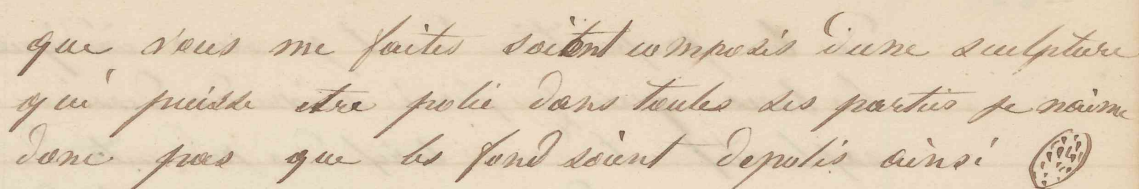 que vous me faites soient composés d'une sculpture
qui puisse etre polie dans toutes ses parties je n'aime
donc pas que les fond soient depolis ainsi